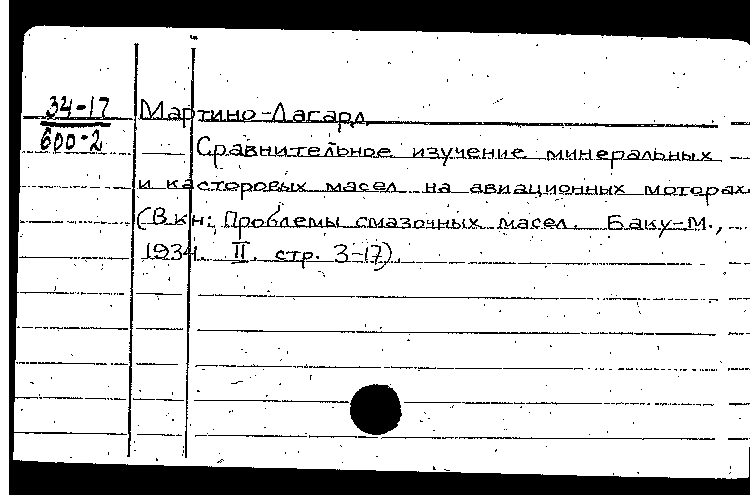 34-17
600-2
Мартино-Лагард
Сравнительное изучение минеральных
и касторовых масел на авиационных моторах.
(В кн: Проблемы смазочных масел. Баку-М.,
1934. II. стр. 3-17).